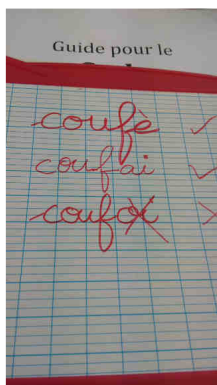 Guide pour le
coufè ✓
coufai ✓
coufoi ×